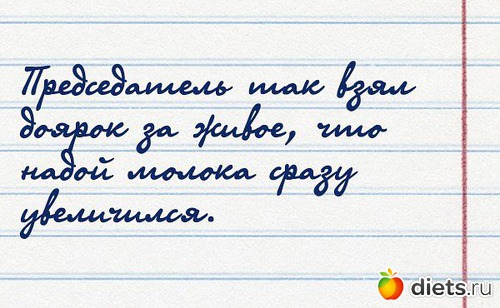 Председатель так взял
доярок за живое, что
надой молока сразу
увеличился.
diets.ru